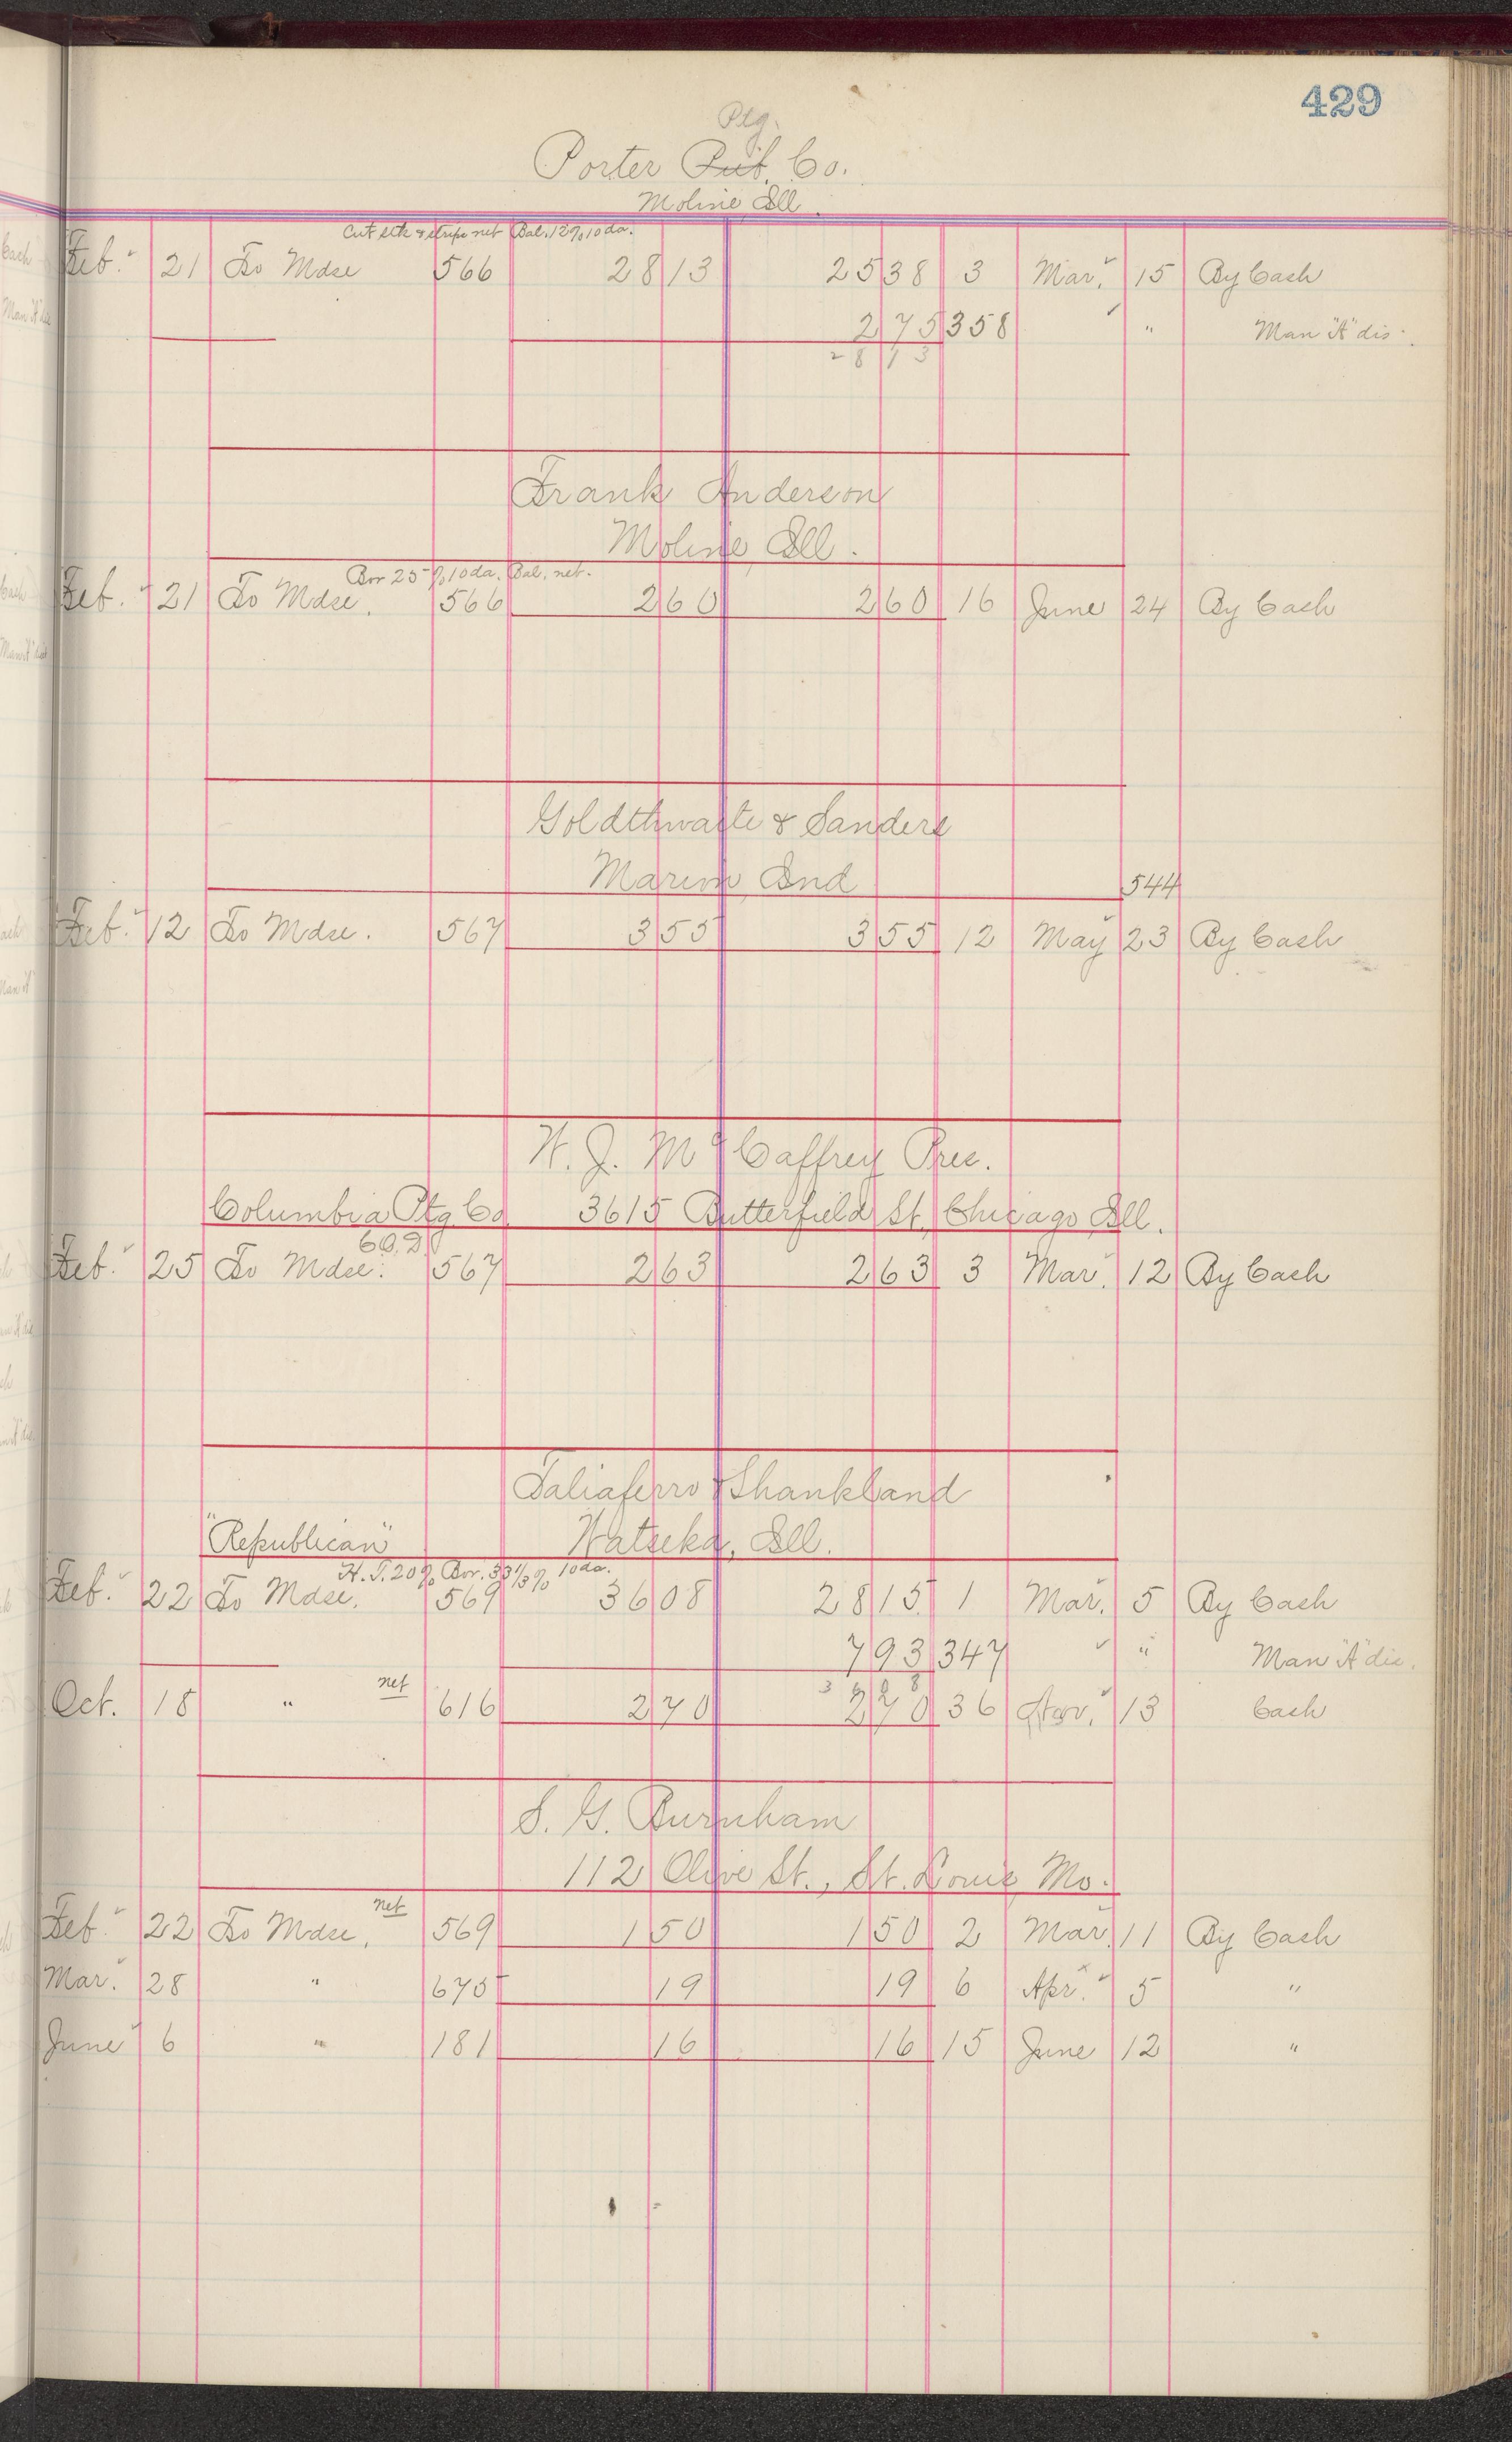 429
Ptg.
Porter Pub. Co.
Moline Ill.
Cut stk & strips net Bal. 12% 10 da.
Feb. 21 To Mdse 566 28 13 25 38 3 Mar. 15 By Cash
2 75 358 " Man "A" dis.
28 13
Frank Anderson
Moline Ill.
Bor 25% 10 da. Bal. net.
Feb. 21 To Mdse. 566 2 60 2 60 16 June 24 By Cash
Goldthwaite & Sanders
Marion Ind
544
Feb. 12 To Mdse. 567 3 55 3 55 12 May 23 By Cash
W. J. McCaffrey Pres.
Columbia Ptg Co 3615 Butterfield St. Chicago Ill.
C.O.D.
Feb. 25 To Mdse. 567 2 63 2 63 3 Mar. 12 By Cash
Taliaferro & Shankland
"Republican" Watseka, Ill.
H.T. 20% Bor. 33 1/3% 10 da.
Feb. 22 To Mdse. 569 36 08 28 15 1 Mar. 5 By Cash
7 93 347 " Man "A" dis.
36 08
Oct. 18 " net 616 2 70 2 70 36 Nov. 13 Cash
S. G. Burnham
112 Olive St., St. Louis Mo.
Feb. 22 To Mdse. net 569 1 50 1 50 2 Mar. 11 By Cash
Mar. 28 " 675 19 19 6 Apr. 5 "
June 6 " 181 16 16 15 June 12 "